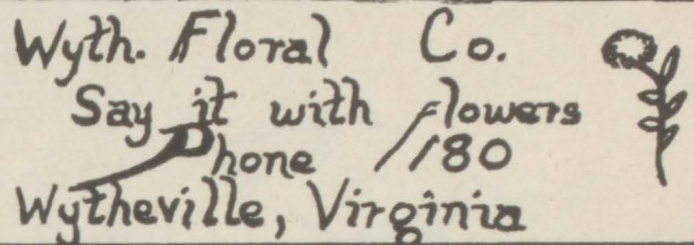 Wyth. Floral Co.
Say it with flowers
Phone 180
Wytheville, Virginia